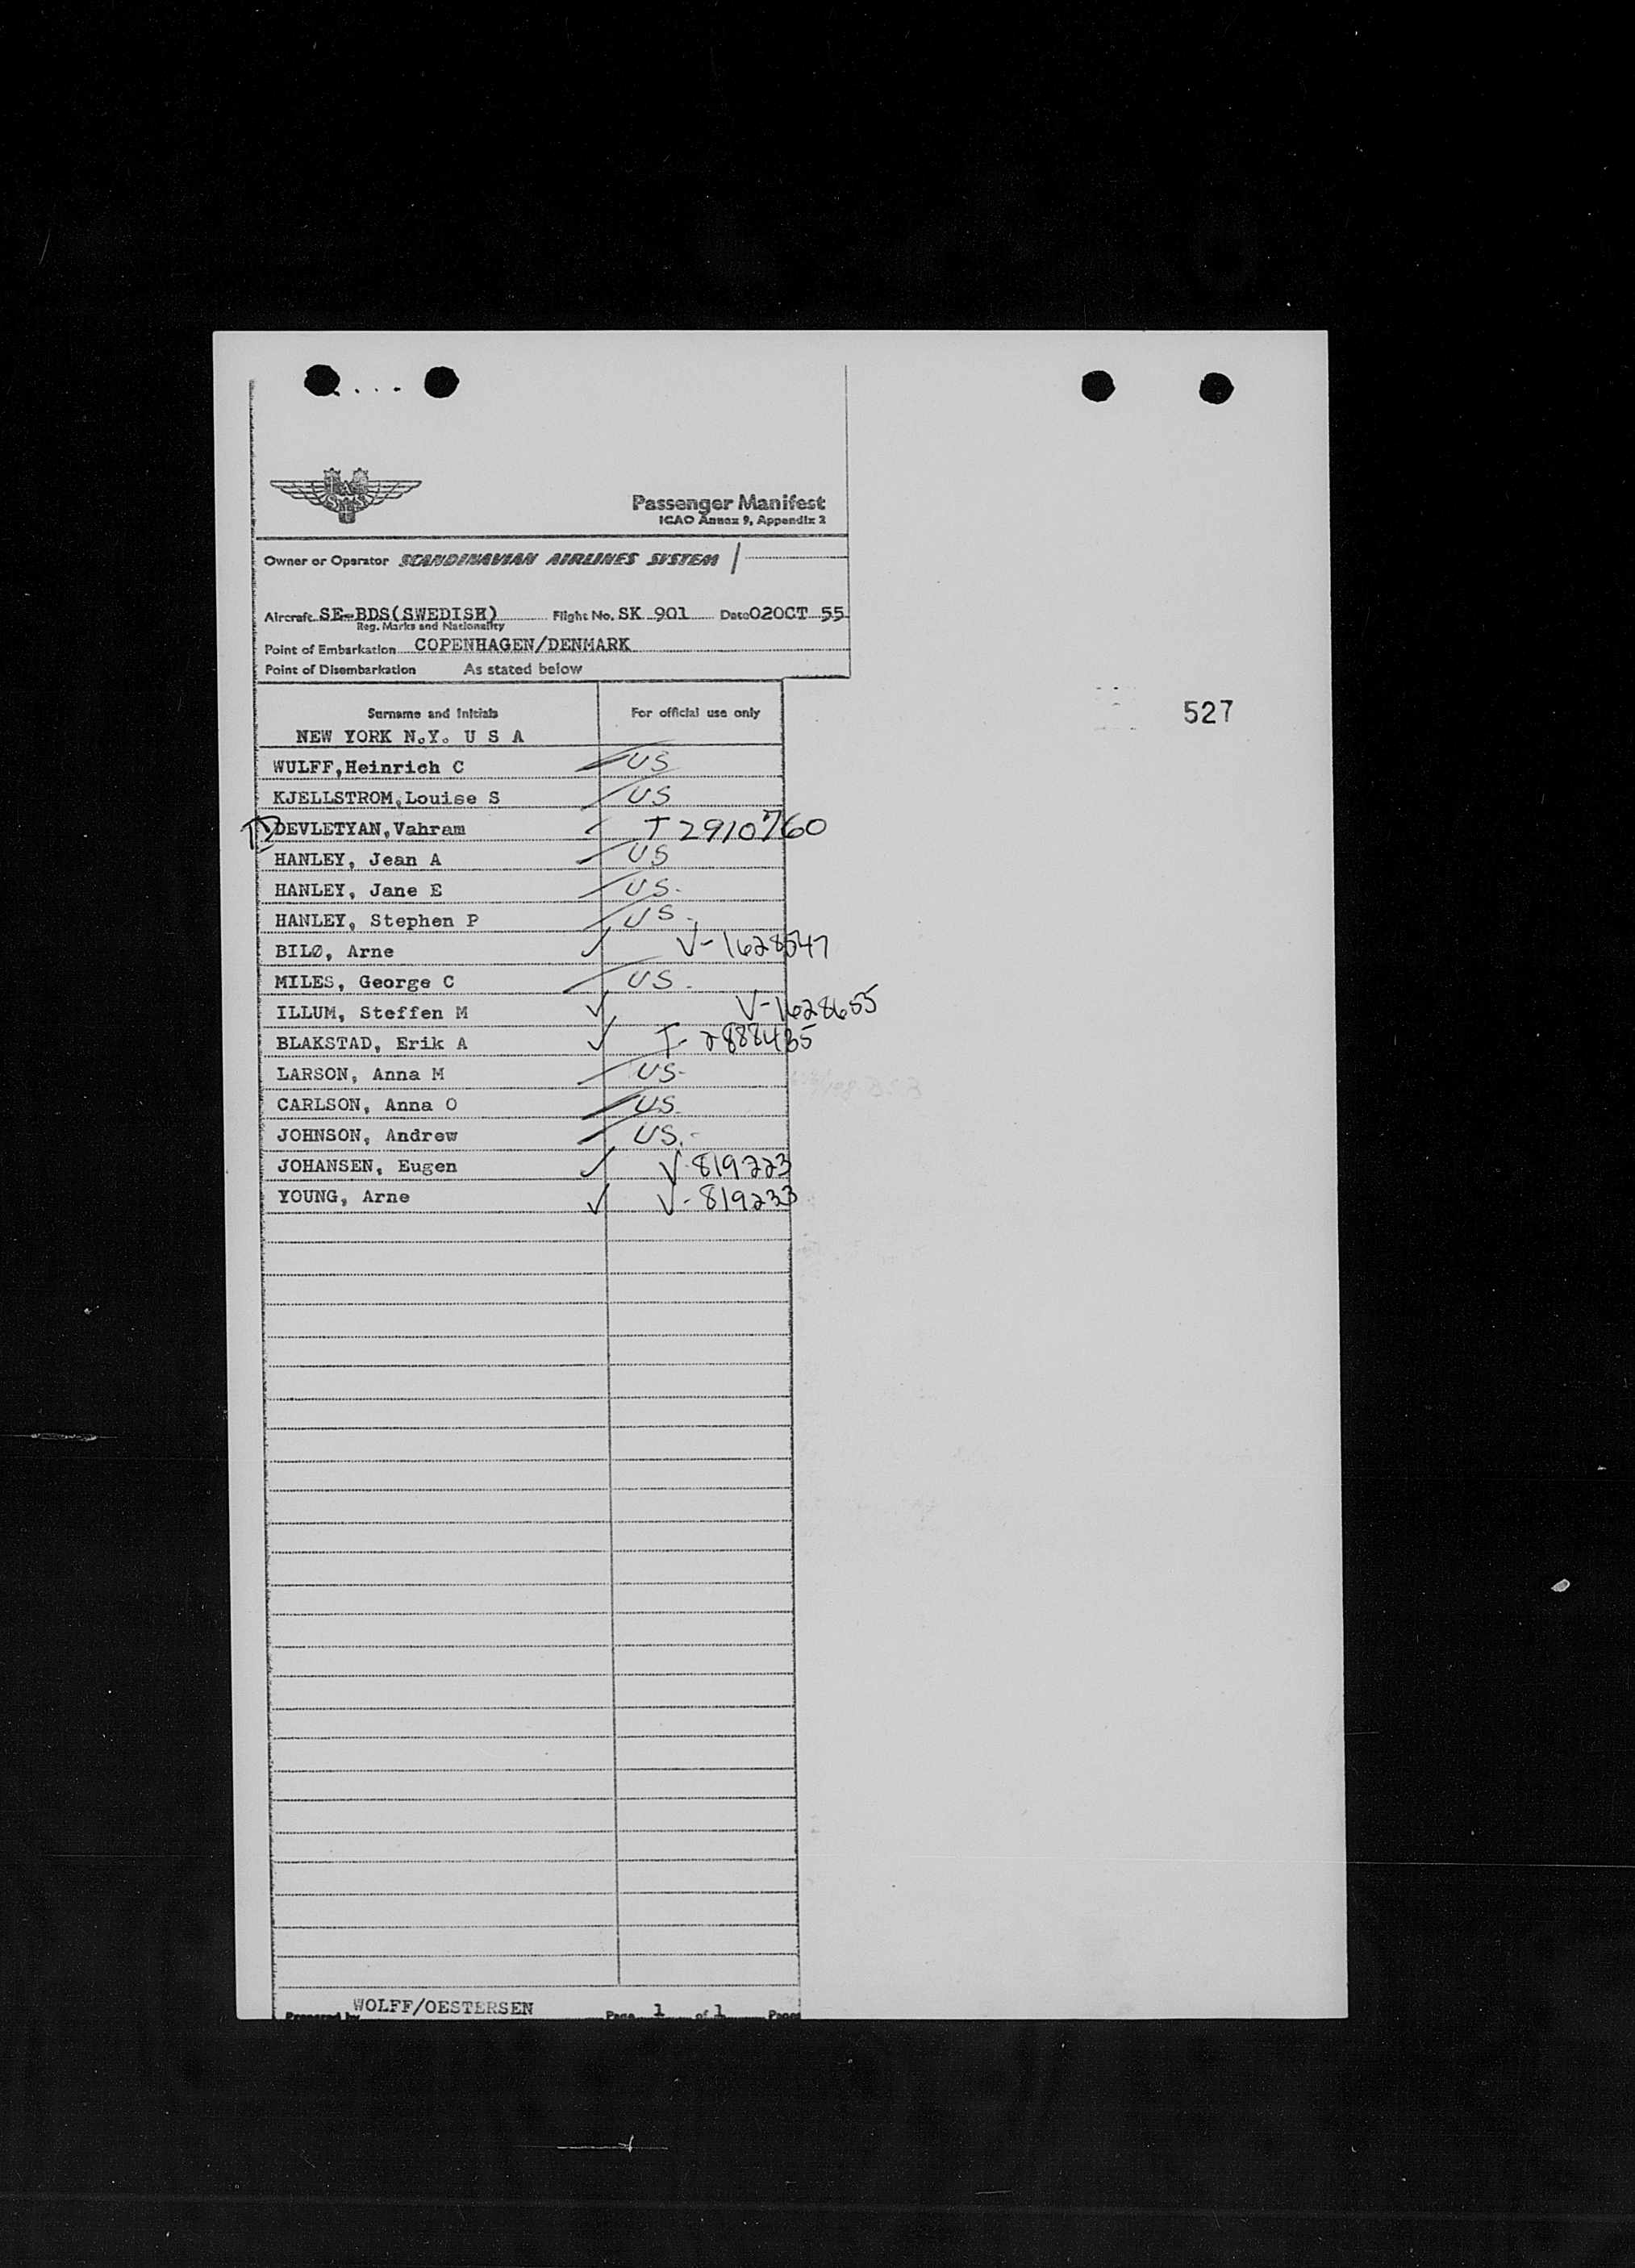 Passenger Manifest
ICAO Annex 9, Appendix 2
Owner or Operator SCANDINAVIAN AIRLINES SYSTEM
Aircraft SE-BDS(SWEDISH) Flight No. SK 901 Date 02OCT 55
Reg. Marks and Nationality
Point of Embarkation COPENHAGEN/DENMARK
Point of Disembarkation As stated below
527
Surname and Initials For official use only
NEW YORK N.Y. U S A
WULFF,Heinrich C US
KJELLSTROM,Louise S US
DEVLETYAN,Vahram T 2910760
HANLEY, Jean A US
HANLEY, Jane E US.
HANLEY, Stephen P US.
BILØ, Arne V-1628547
MILES, George C US.
ILLUM, Steffen M V-1628655
BLAKSTAD, Erik A T-2888465
LARSON, Anna M US-
CARLSON, Anna O US.
JOHNSON, Andrew US.-
JOHANSEN, Eugen V-819223
YOUNG, Arne V-819233
Prepared by WOLFF/OESTERSEN Page 1 of 1 Pages